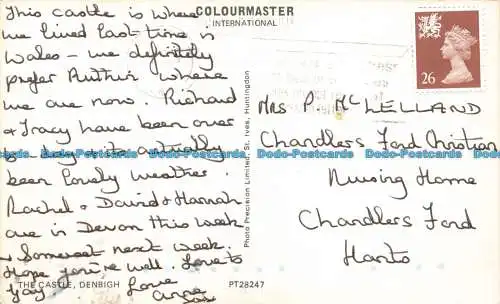 This castle is where
we lived last time in
Wales – we definitely
prefer Ruthin where
we are now. Richard
& Tracy have been over
to-day & its actually
been lovely weather.
Rachel & David & Hannah
are in Devon this week
& Somerset next week.
Hope you're well. Love to
Love
Anne
THE CASTLE, DENBIGH
PT28247
COLOURMASTER
INTERNATIONAL
Photo Precision Limited, St. Ives, Huntingdon
26
MRS P. McLELLAND
Chandlers Ford Christian
Nursing Home
Chandlers Ford
Hants
Dodo-Postcards Dodo-Postcards Dodo-Postcards Dodo-Postcards Dodo-Postcards